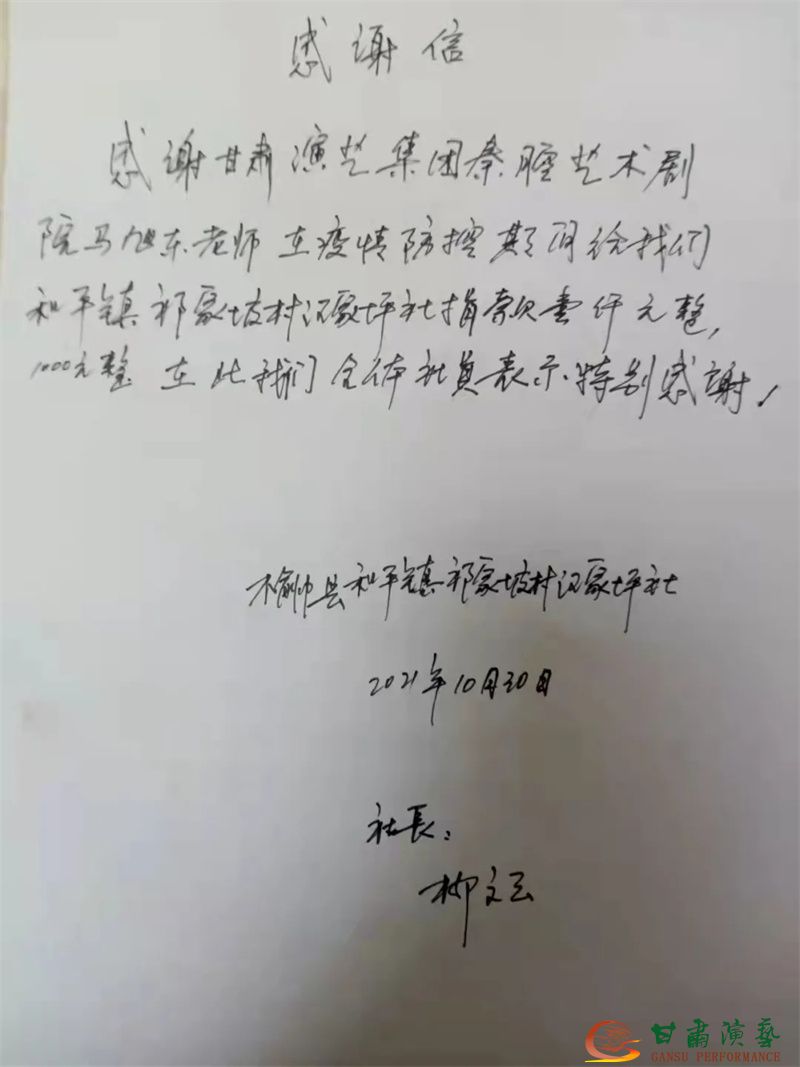 感谢信
感谢甘肃演艺集团秦腔艺术剧
院马旭东老师在疫情防控期间给我们
和平镇祁家坡村汉家坪社捐款壹仟元整,
1000元整 在此我们全体社员表示特别感谢!
榆中县和平镇祁家坡村汉家坪社
2021年10月30日
社長:
柳文云
甘肃演藝
GANSU PERFORMANCE